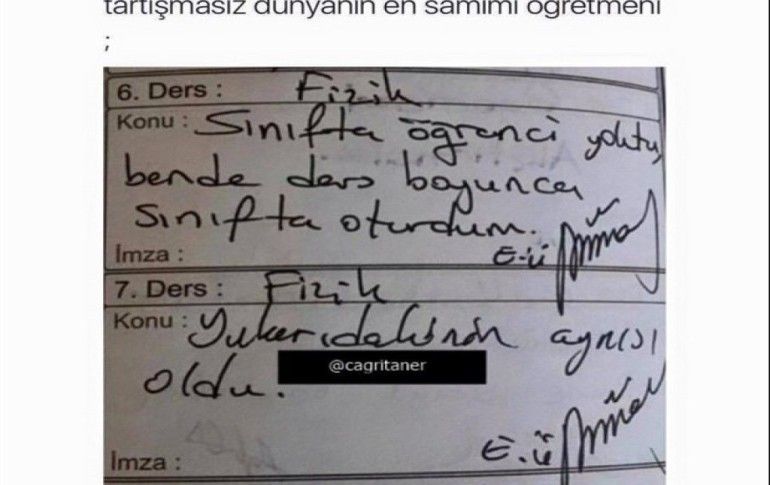 tartışmasız dünyanın en samimi öğretmeni
;
6. Ders : Fizik
Konu : Sınıfta öğrenci yoktu,
bende ders boyunca
sınıfta oturdum.
İmza : E.ü
7. Ders : Fizik
Konu : Yukarıdakinin aynısı
@cagritaner
oldu.
İmza : E.ü